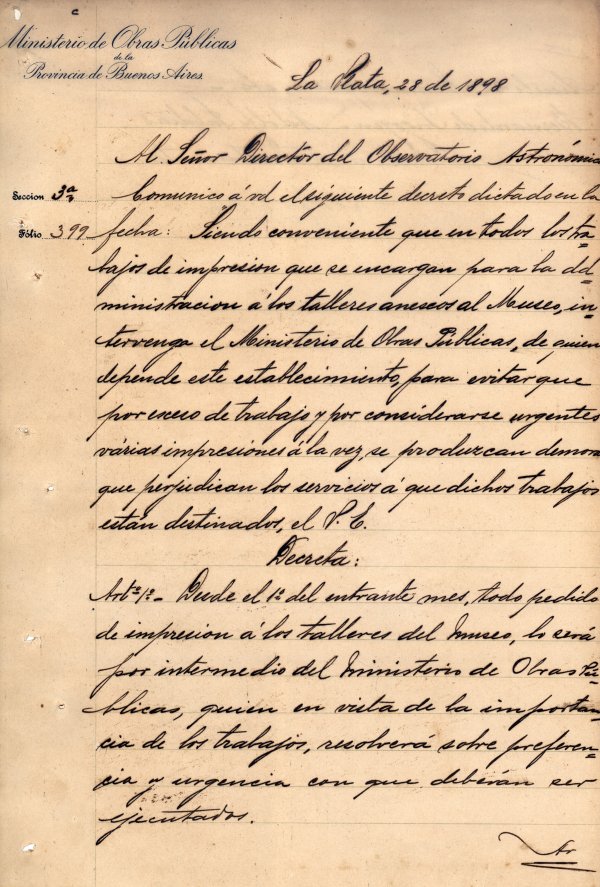 Ministerio de Obras Públicas
de la
Provincia de Buenos Aires.
La Plata, 28 de 1898
Al Señor Director del Observatorio Astronómico
Seccion 3ª
Comunico á vd el siguiente decreto dictado en la
Fólio 399
fecha: Siendo conveniente que en todos los tra=
bajos de impresion que se encargan para la Ad=
ministracion á los talleres anexos al Museo, in=
tervenga el Ministerio de Obras Públicas, de quien
depende este establecimiento, para evitar que
por exceso de trabajo y por considerarse urgentes
várias impresiones á la vez, se produzcan demoras
que perjudican los servicios á que dichos trabajos
están destinados, el P. E.
Decreta:
Artº 1º- Desde el 1º del entrante mes, todo pedido
de impresion á los talleres del Museo, lo será
por intermedio del Ministerio de Obras Pú=
blicas, quien en vista de la importan=
cia de los trabajos, resolverá sobre preferen=
cia y urgencia con que deberán ser
ejecutados.
Ar